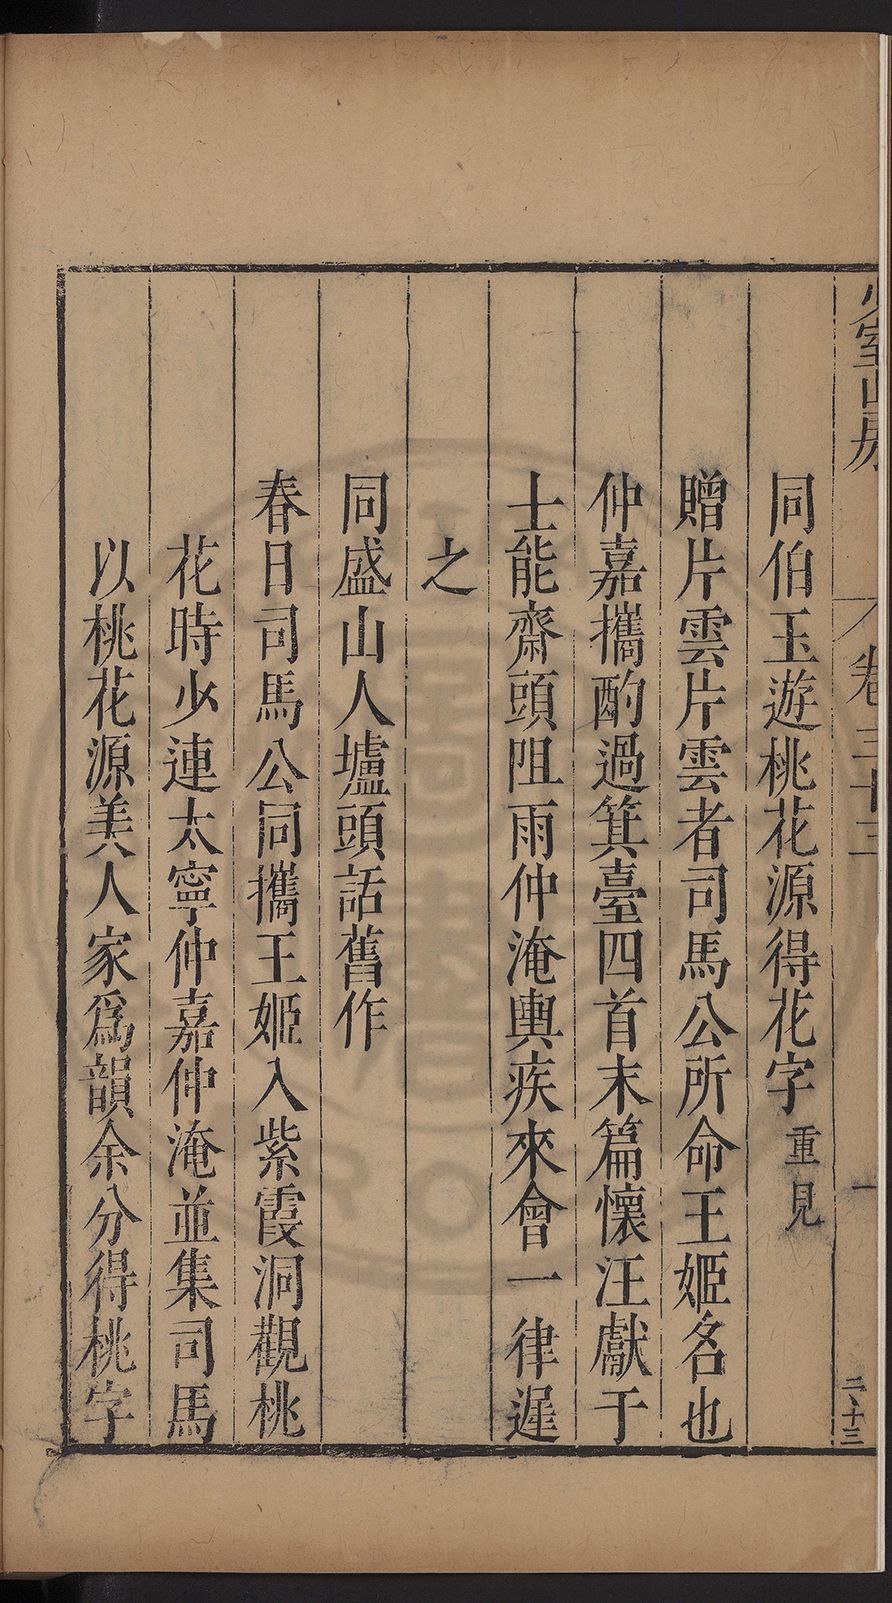 少室山房
卷三十三
一
二、十三
同伯玉遊桃花源得花字 重見
贈片雲片雲者司馬公所命王姬名也
仲嘉攜酌過箕臺四首末篇懷汪獻于
士能齋頭阻雨仲淹輿疾來會一律遲
之
同盛山人壚頭話舊作
春日司馬公同攜王姬入紫霞洞觀桃
花時少連太寧仲嘉仲淹並集司馬
以桃花源美人家爲韻余分得桃字